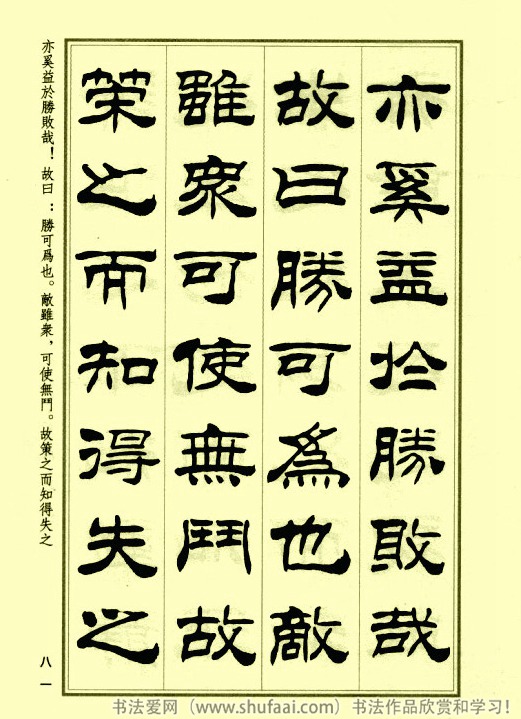 亦奚益於勝敗哉
故曰勝可爲也敵
雖衆可使無鬥故
策之而知得失之
亦奚益於勝敗哉！故曰：勝可爲也。敵雖衆，可使無鬥。故策之而知得失之
八一
书法爱网（www.shufaai.com）书法作品欣赏和学习！